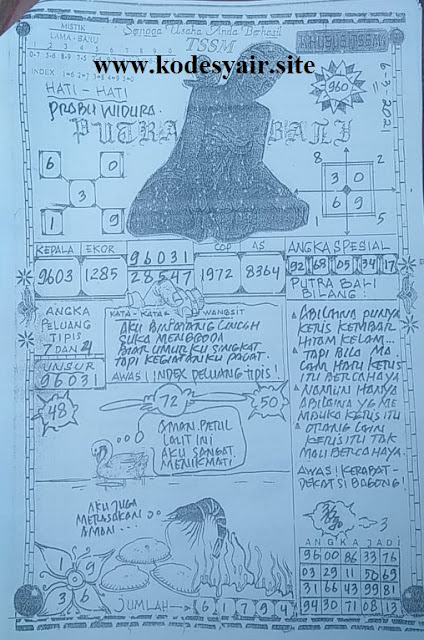 MISTIK
LAMA - BARU
Semoga Usaha Anda Berhasil
TSSM
KHUSUS TSSM
www.kodesyair.site
INDEX
HATI - HATI
PRABU WIDURA.
PUTRA BALI
960
6-3-2021
6 0
3
1 9
8 2
3 0
6 9
1 5
KEPALA EKOR 96031 COP AS
9603 1285 28547 1972 8364
ANGKA SPESIAL
92 68 05 34 17
PUTRA BALI
BILANG:
ANGKA
PELUANG
TIPIS
7 DAN 4
UNSUR
96031
KATA - KATA WANGSIT
AKU BINATANG
SUKA MENGGODA
BIAR UMUR KU SINGKAT
TAPI KEGIATANKU PADAT.
AWAS! INDEX PELUANG TIPIS!
ABILAWA PUNYA
KERIS KEMBAR
HITAM KELAM...
TAPI BILA MA
LAM HARI KERIS
ITU BERCAHAYA
NAMUN HANYA
ABILAWA YG ME
MBUKA KERIS ITU
ORANG LAIN
KERIS ITU TAK
MAU BERCAHAYA.
AWAS! KERABAT-
DEKAT SI BAGONG!
48
72
50
AMAN BETUL
LAUT INI
AKU SANGAT
MENIKMATI
AKU JUGA
MERASAKAN
AMAN....
1 9
3 6
JUMLAH 6 1 7 9 4
3
ANGKA JADI
96 00 86 33 76
03 29 11 50 69
31 66 43 99 81
94 30 71 08 13